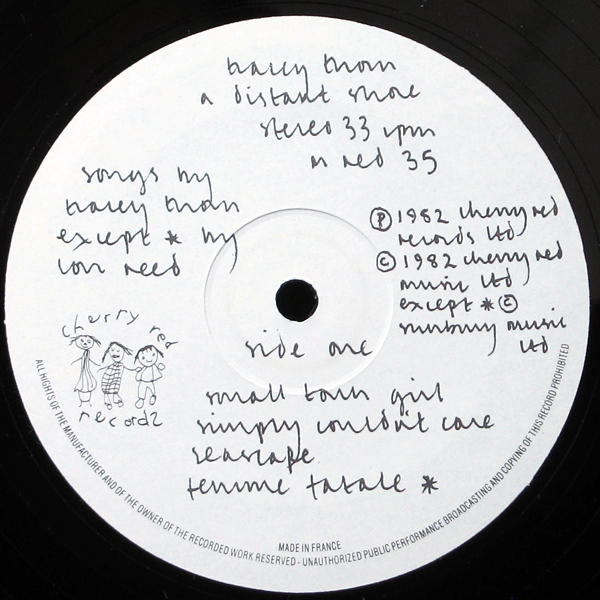 tracey thorn
a distant shore
stereo 33 rpm
m red 35
songs by
tracey thorn
except * by
lou reed
Ⓟ 1982 cherry red
records ltd
© 1982 cherry red
music ltd
except * ©
sunbury music
ltd
cherry red
records
side one
small town girl
simply couldn't care
seascape
femme fatale *
MADE IN FRANCE
ALL RIGHTS OF THE MANUFACTURER AND OF THE OWNER OF THE RECORDED WORK RESERVED - UNAUTHORIZED PUBLIC PERFORMANCE BROADCASTING AND COPYING OF THIS RECORD PROHIBITED